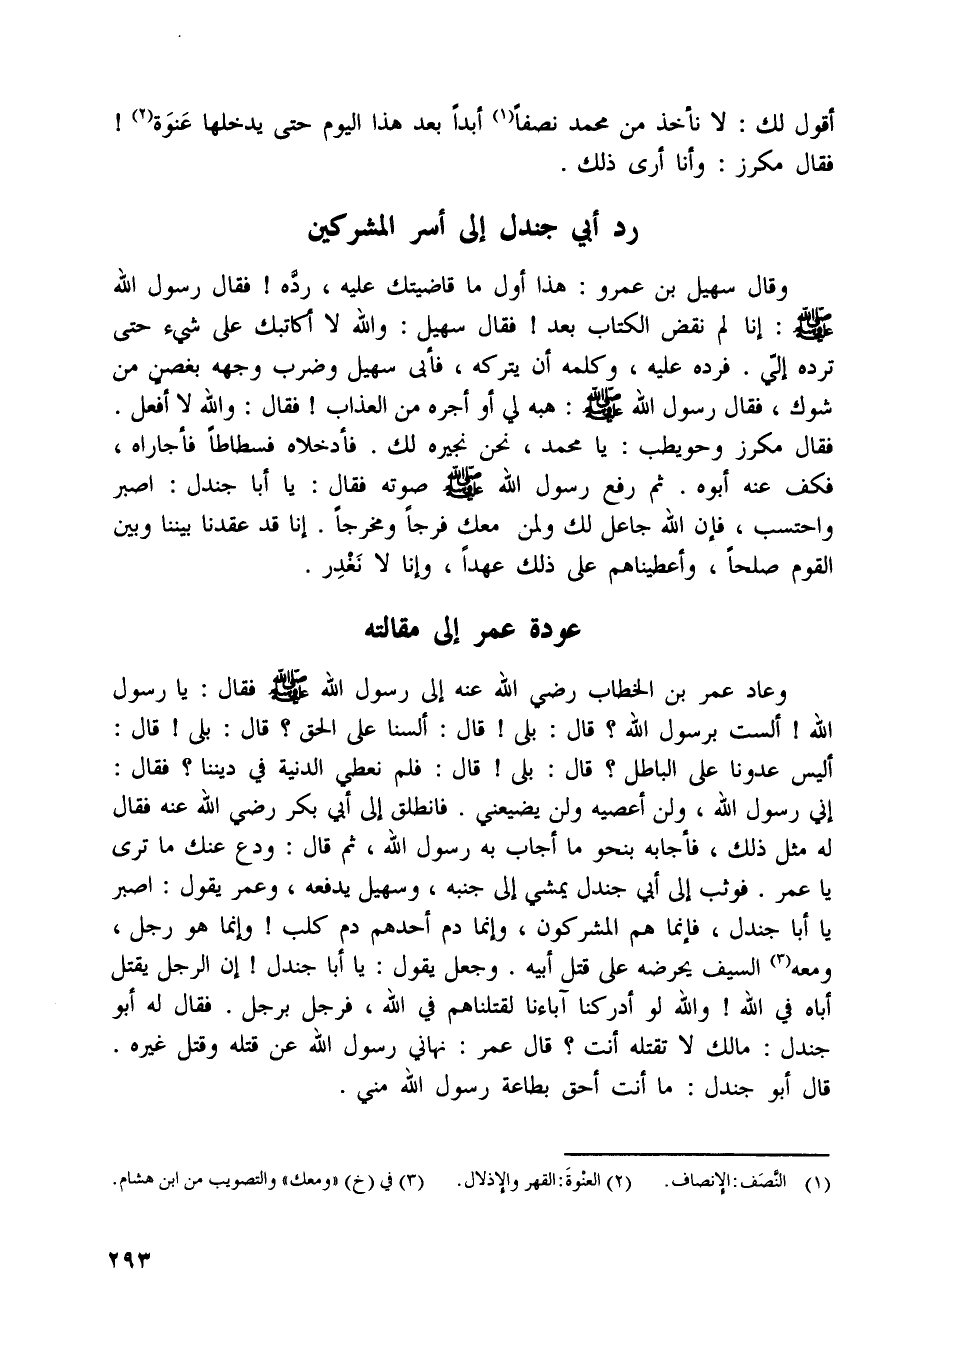 أقول لك : لا نأخذ من محمد نصفاً(١) أبداً بعد هذا اليوم حتى يدخلها عَنوَة(٢) !
فقال مكرز : وأنا أرى ذلك .
رد أبي جندل إلى أسر المشركين
وقال سهيل بن عمرو : هذا أول ما قاضيتك عليه ، ردَّه ! فقال رسول الله
ﷺ : إنا لم نقض الكتاب بعد ! فقال سهيل : والله لا أكاتبك على شيء حتى
ترده إليّ . فرده عليه ، وكلمه أن يتركه ، فأبى سهيل وضرب وجهه بغصن من
شوك ، فقال رسول الله ﷺ : هبه لي أو أجره من العذاب ! فقال : والله لا أفعل .
فقال مكرز وحويطب : يا محمد ، نحن نجيره لك . فأدخلاه فسطاطاً فأجاراه ،
فكف عنه أبوه . ثم رفع رسول الله ﷺ صوته فقال : يا أبا جندل : اصبر
واحتسب ، فإن الله جاعل لك ولمن معك فرجاً ومخرجاً . إنا قد عقدنا بيننا وبين
القوم صلحاً ، وأعطيناهم على ذلك عهداً ، وإنا لا نَغْدِر .
عودة عمر إلى مقالته
وعاد عمر بن الخطاب رضي الله عنه إلى رسول الله ﷺ فقال : يا رسول
الله ! ألست برسول الله ؟ قال : بلى ! قال : ألسنا على الحق ؟ قال : بلى ! قال :
أليس عدونا على الباطل ؟ قال : بلى ! قال : فلم نعطي الدنية في ديننا ؟ فقال :
إني رسول الله ، ولن أعصيه ولن يضيعني . فانطلق إلى أبي بكر رضي الله عنه فقال
له مثل ذلك ، فأجابه بنحو ما أجاب به رسول الله ، ثم قال : ودع عنك ما ترى
يا عمر . فوثب إلى أبي جندل يمشي إلى جنبه ، وسهيل يدفعه ، وعمر يقول : اصبر
يا أبا جندل ، فإنما هم المشركون ، وإنما دم أحدهم دم كلب ! وإنما هو رجل ،
ومعه(٣) السيف يحرضه على قتل أبيه . وجعل يقول : يا أبا جندل ! إن الرجل يقتل
أباه في الله ! والله لو أدركنا آباءنا لقتلناهم في الله ، فرجل برجل . فقال له أبو
جندل : مالك لا تقتله أنت ؟ قال عمر : نهاني رسول الله عن قتله وقتل غيره .
قال أبو جندل : ما أنت أحق بطاعة رسول الله مني .
(١) النَّصَف : الإنصاف . (٢) العنْوَة : القهر والإذلال . (٣) في (خ) «ومعك» والتصويب من ابن هشام .
٢٩٣